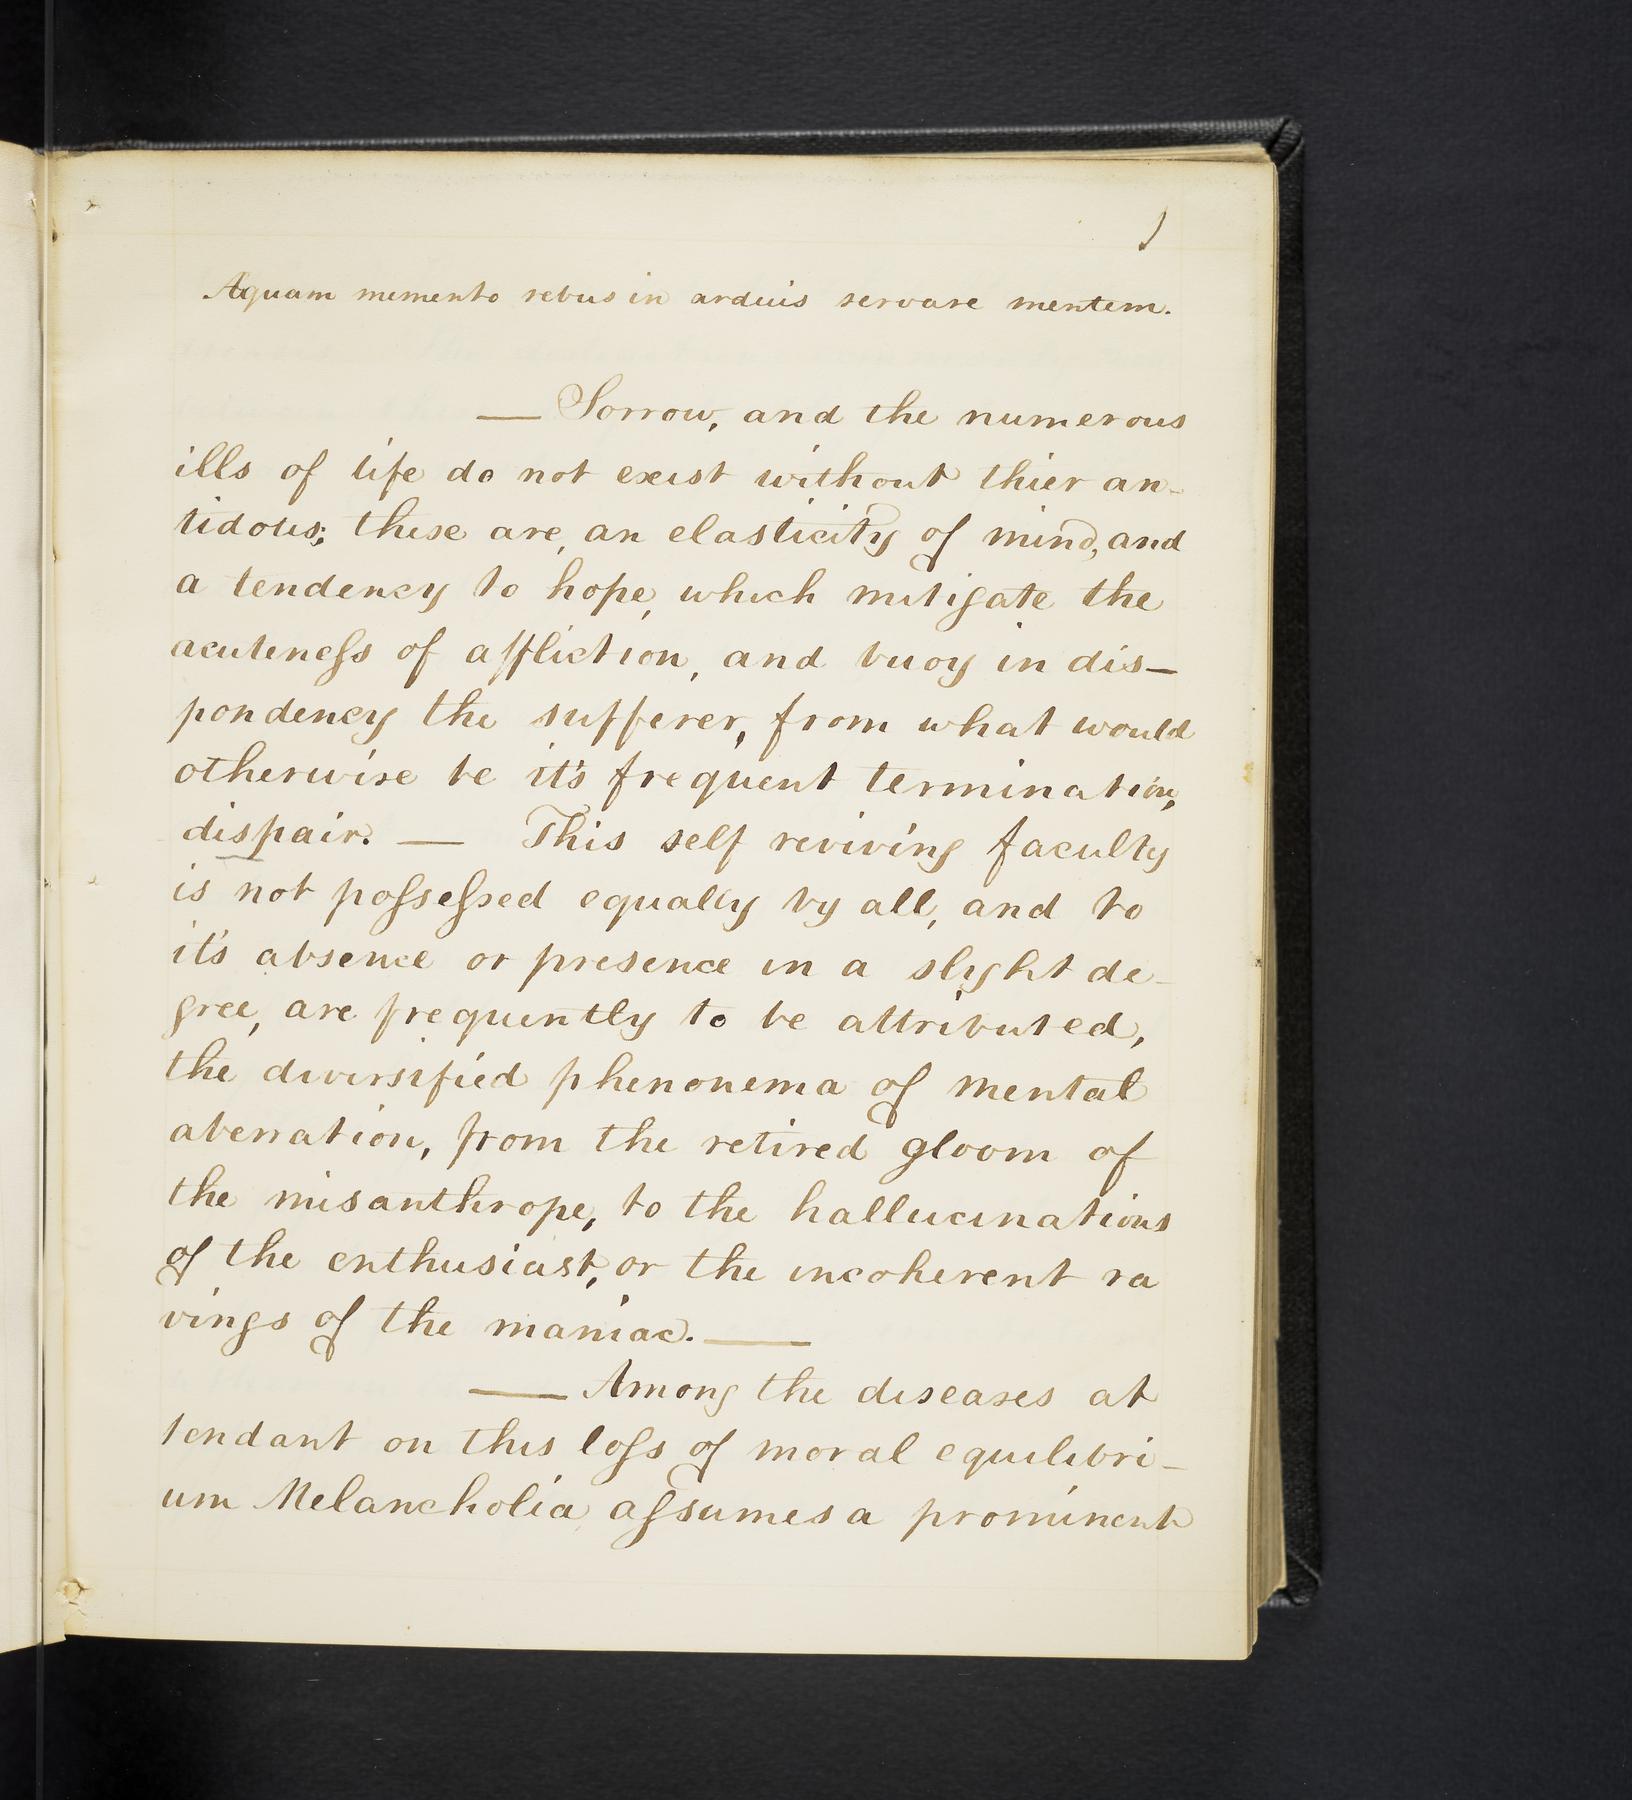 1
Æquam memento rebus in arduis servare mentem.
— Sorrow, and the numerous
ills of life do not exist without thier an-
tidotes; these are, an elasticity of mind, and
a tendency to hope, which mitigate the
acuteneſs of affliction, and buoy in dis-
pondency the sufferer, from what would
otherwise be it's frequent termination,
dispair. — This self reviving faculty
is not poſseſsed equally by all, and to
it's absence or presence in a slyght de-
gree, are frequently to be attributed,
the diversified phenonema of mental
aberration, from the retired gloom of
the misanthrope, to the hallucinations
of the enthusiast, or the incoherent ra
vings of the maniac. —
— Among the diseases at
tendant on this loſs of moral equilibri-
um Melancholia aſsumes a prominent